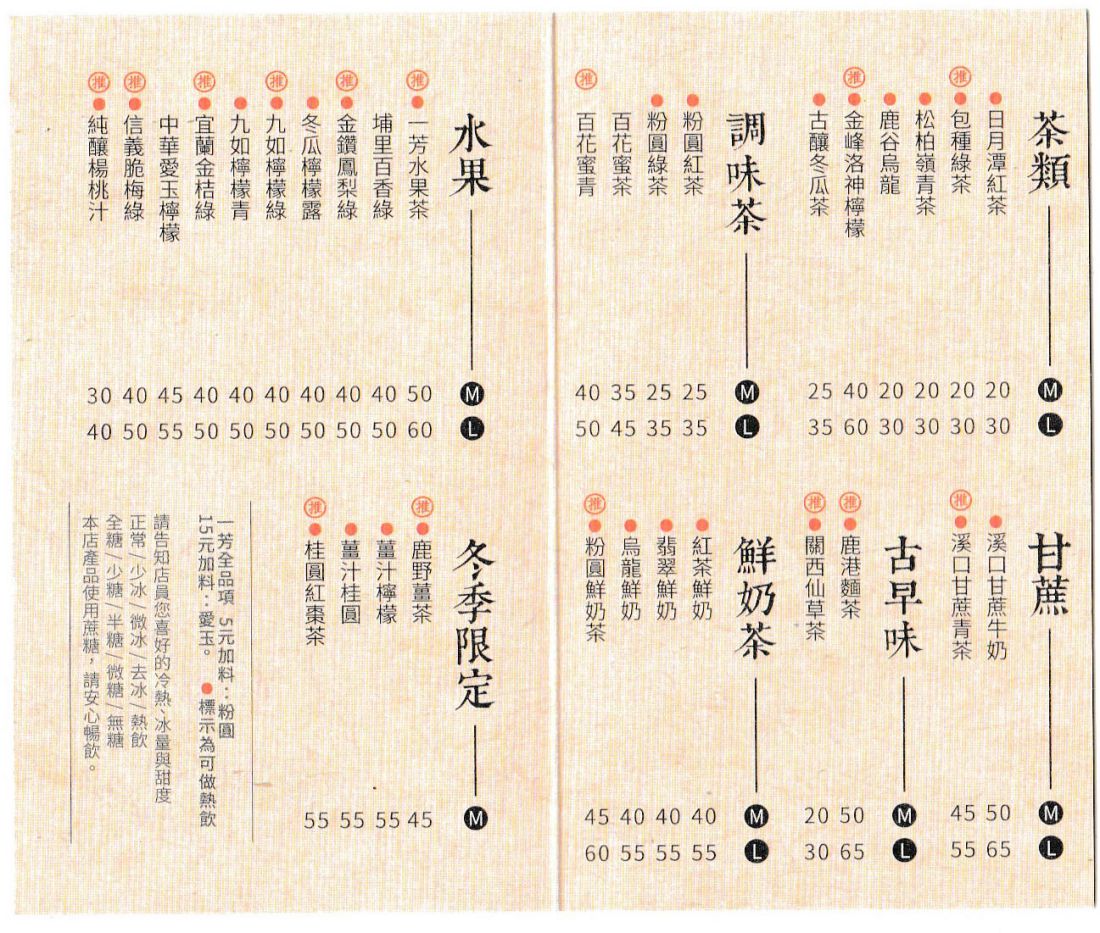 茶類 M L
日月潭紅茶 20 30
推 包種綠茶 20 30
松柏嶺青茶 20 30
鹿谷烏龍 20 30
推 金峰洛神檸檬 40 60
古釀冬瓜茶 25 35
調味茶 M L
粉圓紅茶 25 35
粉圓綠茶 25 35
百花蜜茶 35 45
推 百花蜜青 40 50
甘蔗 M L
溪口甘蔗牛奶 50 65
推 溪口甘蔗青茶 45 55
古早味 M L
推 鹿港麵茶 50 65
推 關西仙草茶 20 30
鮮奶茶 M L
紅茶鮮奶 40 55
翡翠鮮奶 40 55
烏龍鮮奶 40 55
推 粉圓鮮奶茶 45 60
水果 M L
推 一芳水果茶 50 60
埔里百香綠 40 50
推 金鑽鳳梨綠 40 50
冬瓜檸檬露 40 50
推 九如檸檬綠 40 50
九如檸檬青 40 50
推 宜蘭金桔綠 40 50
中華愛玉檸檬 45 55
推 信義脆梅綠 40 50
推 純釀楊桃汁 30 40
冬季限定 M
推 鹿野薑茶 45
薑汁檸檬 55
薑汁桂圓 55
推 桂圓紅棗茶 55
一芳全品項 5元加料：粉圓
15元加料：愛玉。 ●標示為可做熱飲
請告知店員您喜好的冷熱、冰量與甜度
正常/少冰/微冰/去冰/熱飲
全糖/少糖/半糖/微糖/無糖
本店產品使用蔗糖，請安心暢飲。